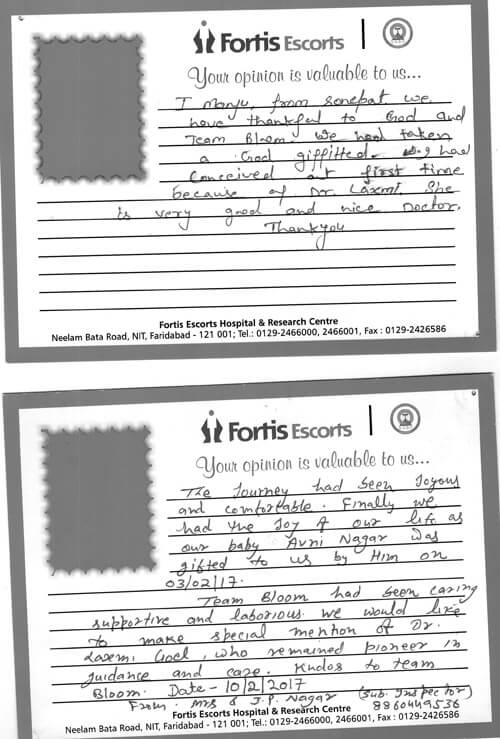 Fortis Escorts
Your opinion is valuable to us...
I Manju, from Sonepat. we
have thankful to God and
Team Bloom. We had taken
a God giffitted. I had
Conceived at first time
because of Dr. Laxmi. She
is very good and nice Doctor.
Thankyou
Fortis Escorts Hospital & Research Centre
Neelam Bata Road, NIT, Faridabad - 121 001; Tel.: 0129-2466000, 2466001, Fax : 0129-2426586
Fortis Escorts
Your opinion is valuable to us...
The Journey had been Joyous
and comfortable. Finally we
had the Joy of our life as
our baby Avni Nagar was
gifted to us by Him on
03/02/17.
Team Bloom had been caring
supportive and laborious. we would like
to make special mention of Dr.
Laxmi Goel, who remained pioneer in
guidance and care. Kudos to team
Bloom. Date - 10/2/2017
From. Mrs & J.P. Nagar (Sub. Inspector)
8860449536
Fortis Escorts Hospital & Research Centre
Neelam Bata Road, NIT, Faridabad - 121 001; Tel.: 0129-2466000, 2466001, Fax : 0129-2426586